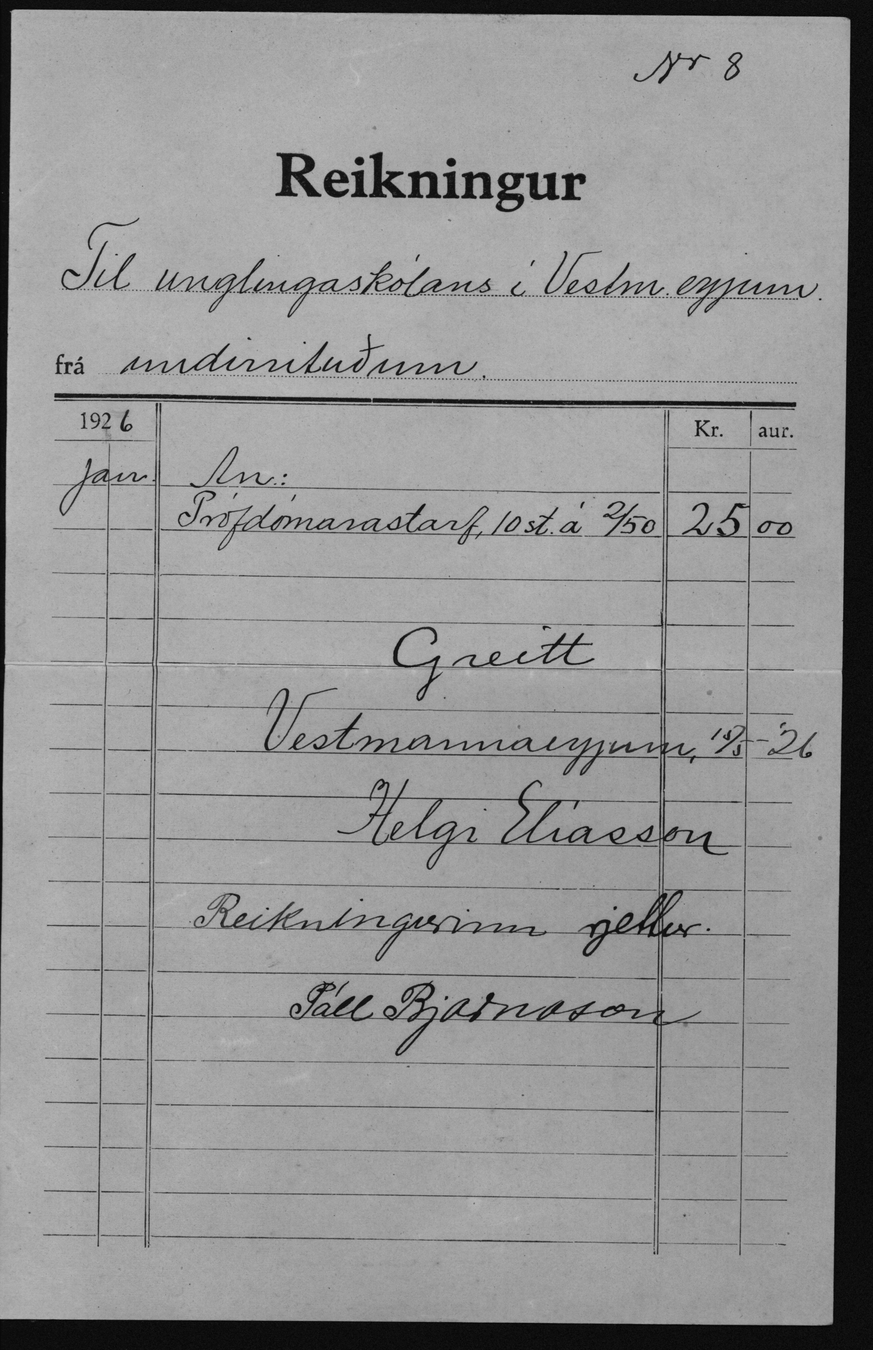 Nr 8
Reikningur
Til unglingaskólans í Vestm.eyjum.
frá undirrituðum.
1926 Kr. aur.
Jan. An.:
Prófdómarastarf, 10 st. á 2/50 25 00
Greitt
Vestmannaeyjum, 15/5 - '26
Helgi Elíasson
Reikningurinn rjettur.
Páll Bjarnason